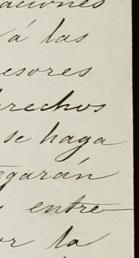 aciones
á las
esores
erechos
se haga
egarán
entre
or la